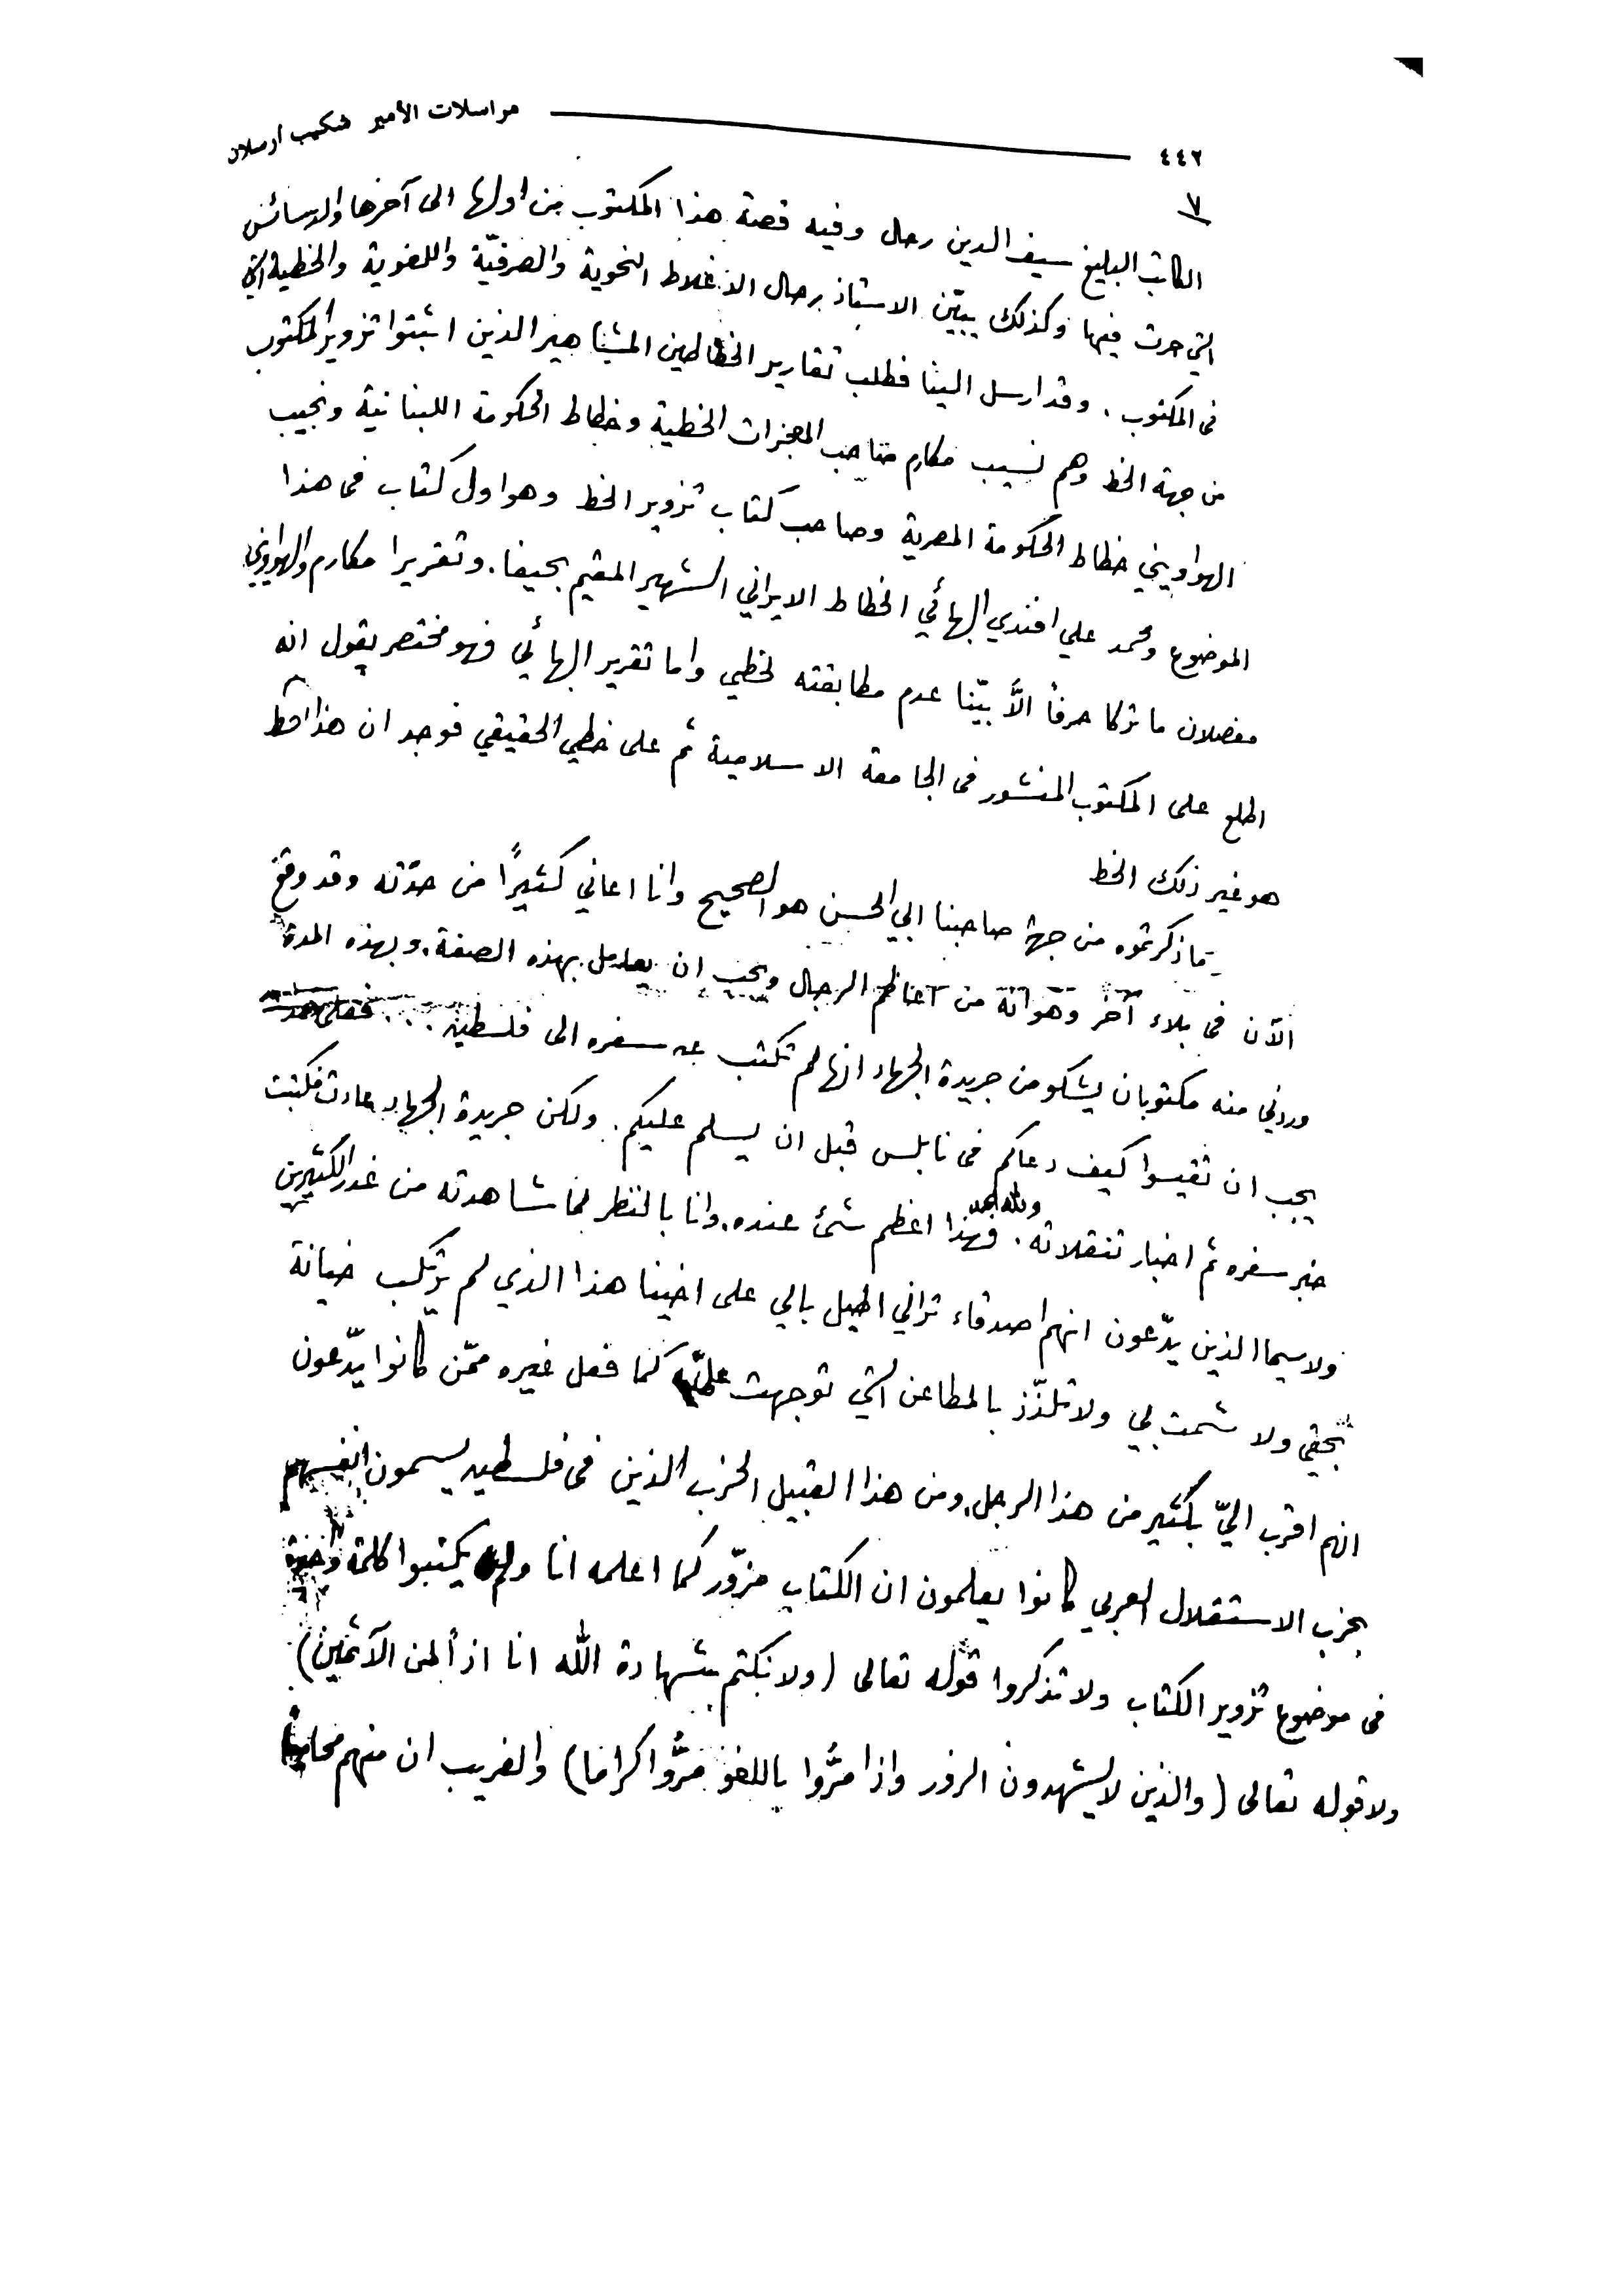 ٤٤٢ مراسلات الأمير شكيب أرسلان
٧
الكاتب البليغ سيف الدين رحال وفيه قصة هذا المكتوب من اولها الى آخرها والدسائس
التي جرت فيها وكذلك يبيّن الاستاذ رحال الاغلاط النحوية والصرفيّة واللغوية والخطية التي
فى المكتوب . وقد ارسل الينا فطلب تقارير الخطاطين المشاهير الذين اثبتوا تزوير المكتوب
من جهة الخط وهم نسيب مكارم صاحب المعجزات الخطية وخطاط الحكومة اللبنانية ونجيب
الهواويني خطاط الحكومة المصرية وصاحب كتاب تزوير الخط وهو اول كتاب فى هذا
الموضوع ومحمد علي افندي البهائي الخطاط الايراني الشهير المقيم بحيفا . وتقريرا مكارم والهواويني
مفصلان ما تركا حرفاً الاَّ بيّنا عدم مطابقته لخطي واما تقرير البهائي فهو مختصر يقول انه
اطلع على المكتوب المنشور فى الجامعة الاسلامية ثم على خطي الحقيقي فوجد ان هذا الخط
هو غير ذلك الخط
ما ذكرتموه من جهة صاحبنا ابي الحسن هو الصحيح وانا اعاني كثيرًا من حدّته وقد وقع
الآن فى بلاء آخر وهو انه من اعاظم الرجال ويجب ان يعامل بهذه الصفة . وبهذه المدة
وردني منه مكتوبان يشكو من جريدة الجهاد انها لم تكتب عن سفره الى فلسطين . . . فعلى هذا
يجب ان تقيسوا كيف دعاكم فى نابلس قبل ان يسلم عليكم . ولكن جريدة الجهاد عادت فكتبت
خبر سفره ثم اخبار تنقلاته ولله الحمد . فهذا اعظم شئ عنده . وانا بالنظر لما شاهدته من غدر الكثيرين
ولا سيما الذين يدّعون انهم اصدقاء تراني اطيل بالي على اخينا هذا الذي لم يرتكب خيانة
بحقي ولا شمت بي ولا تلذّذ بالمطاعن التي توجهت عليّ كما فعل غيره ممّن كانوا يدّعون
انهم اقرب اليّ بكثير من هذا الرجل . ومن هذا القبيل الحزب الذين فى فلسطين يسمون انفسهم
بحزب الاستقلال العربي كانوا يعلمون ان الكتاب مزوّر كما اعلمه انا ولم يكتبوا كلمة واحدة
فى موضوع تزوير الكتاب ولا تذكروا قوله تعالى ( ولا نكتم شهادة الله انا اذاً لمن الآثمين )
ولا قوله تعالى ( والذين لا يشهدون الزور واذا مرُّوا باللغو مرُّوا كراما ) والغريب ان منهم